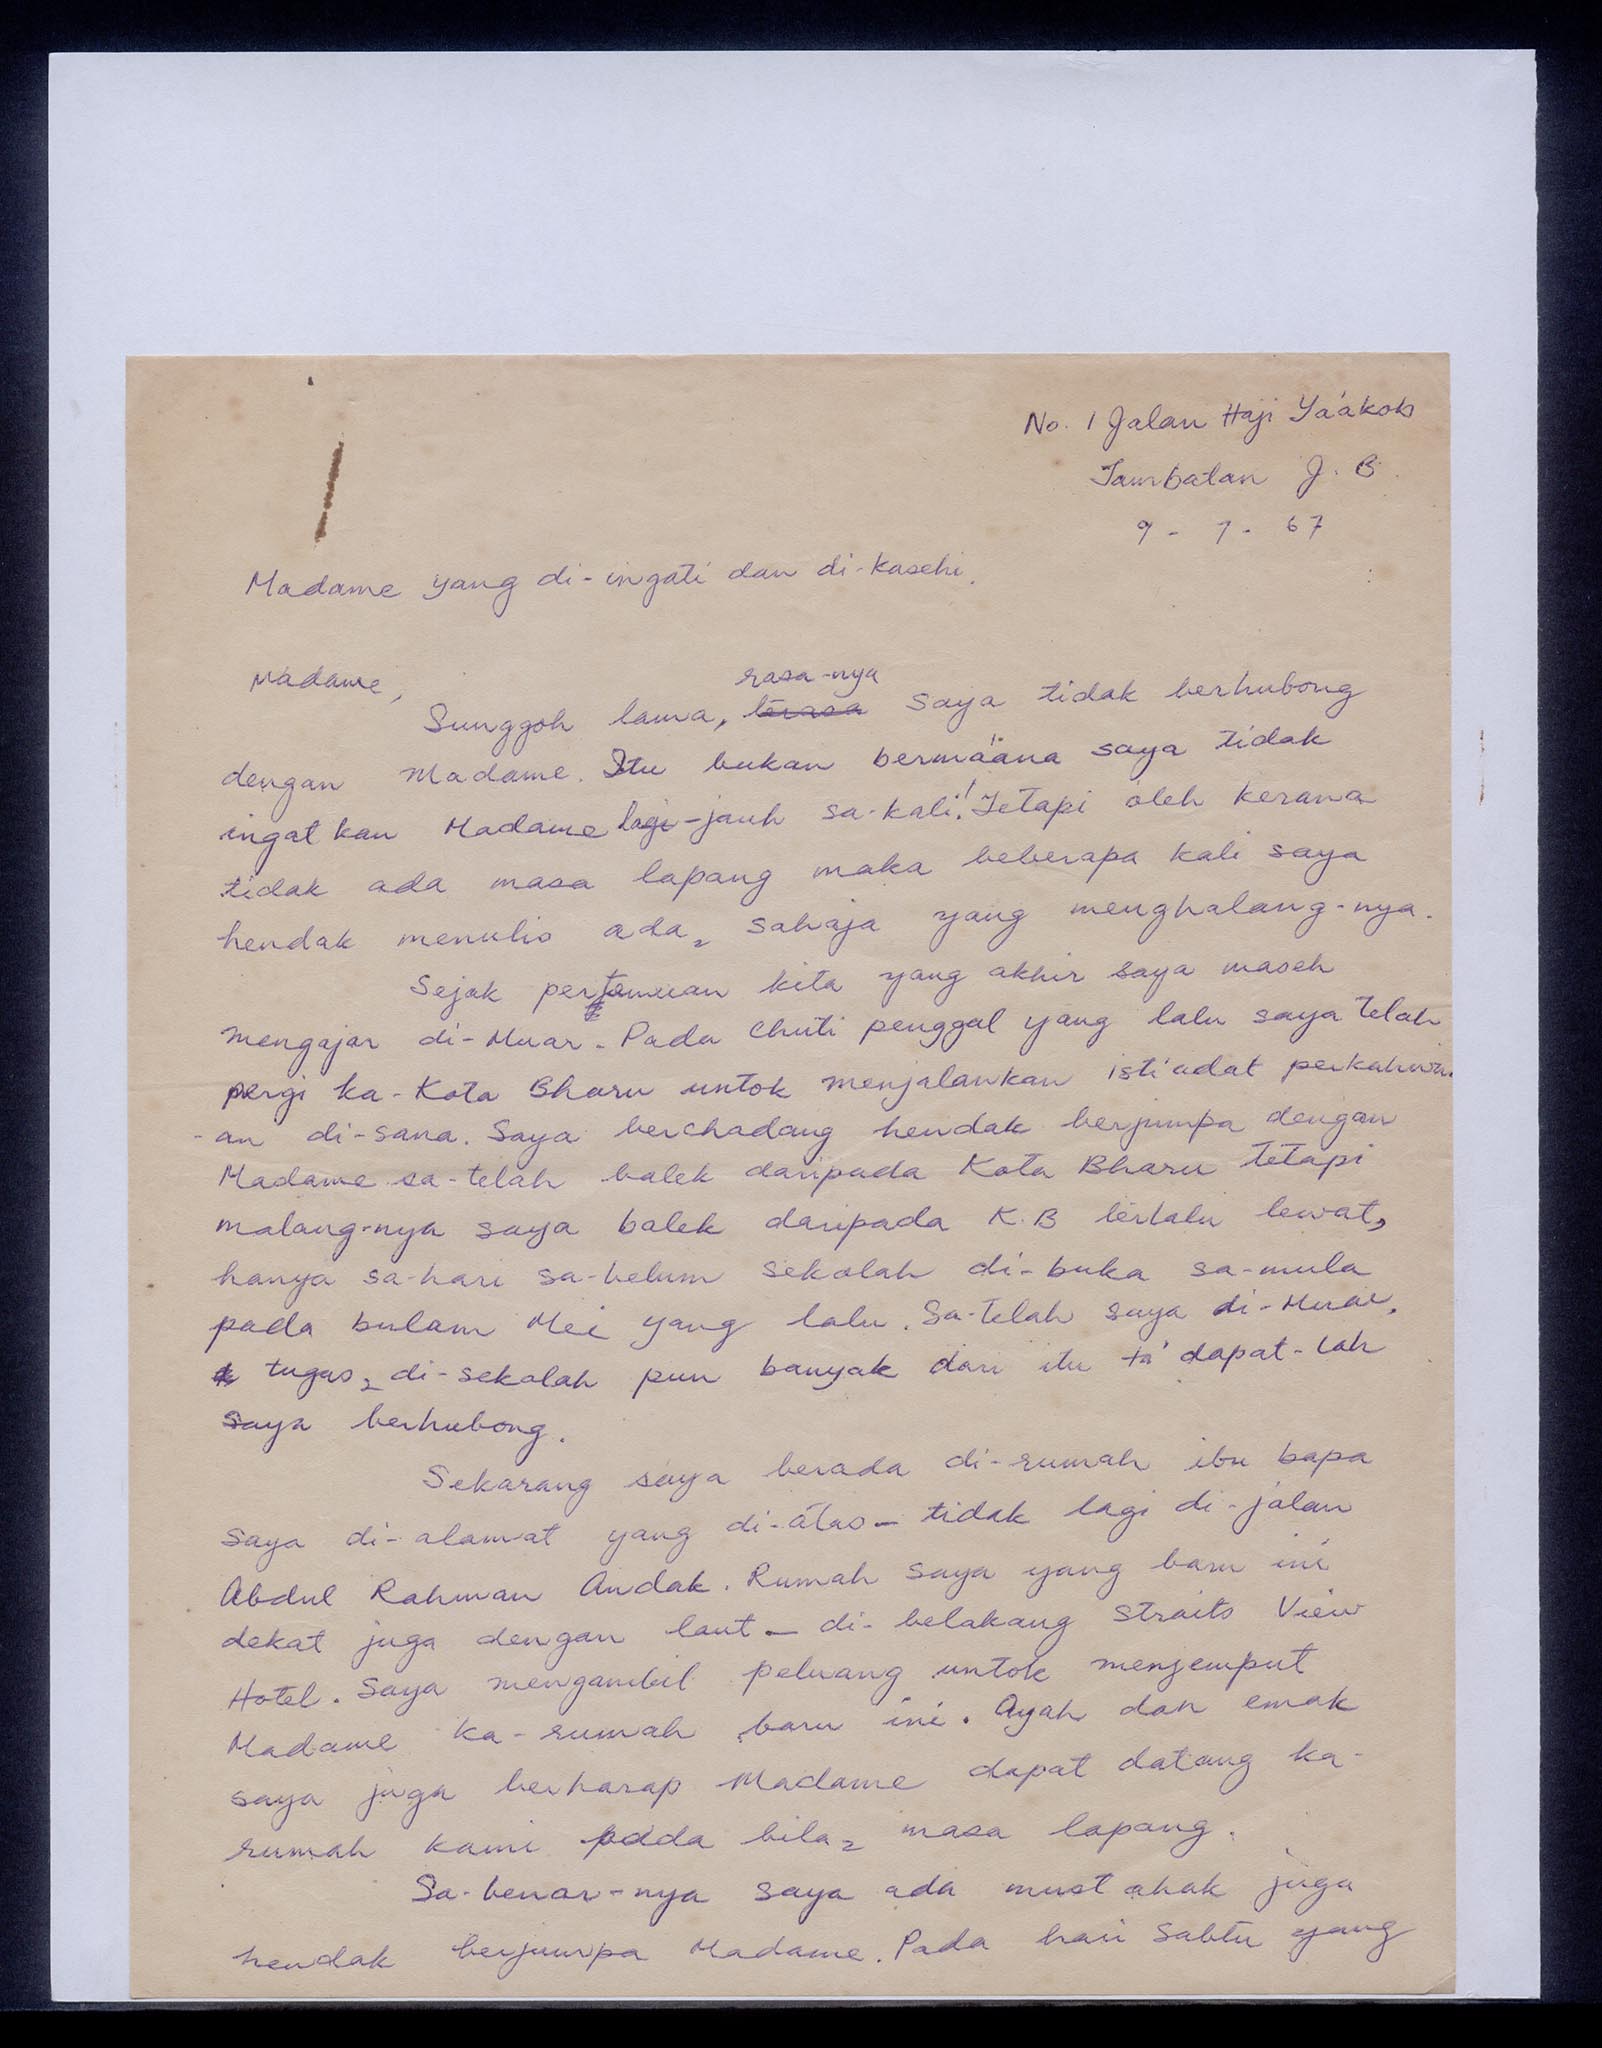 No. 1 Jalan Haji Ya'akob
Tambatan J. B.
9 - 7 - 67
Madame yang di-ingati dan di-kasehi.
Madame,
rasa-nya
Sunggoh lama, terasa saya tidak berhubong
dengan Madame. Itu bukan berma'ana saya tidak
ingatkan Madame lagi - jauh sa-kali! Tetapi oleh kerana
tidak ada masa lapang maka beberapa kali saya
hendak menulis ada2 sahaja yang menghalang-nya.
Sejak pertemuan kita yang akhir saya maseh
mengajar di-Muar. Pada chuti penggal yang lalu saya telah
pergi ka-Kota Bharu untok menjalankan isti'adat perkahwin-
-an di-sana. Saya berchadang hendak berjumpa dengan
Madame sa-telah balek daripada Kota Bharu tetapi
malang-nya saya balek daripada K.B terlalu lewat,
hanya sa-hari sa-belum sekolah di-buka sa-mula
pada bulan Mei yang lalu. Sa-telah saya di-Muar,
tugas2 di-sekolah pun banyak dari itu ta' dapat-lah
saya berhubong.
Sekarang saya berada di-rumah ibu bapa
saya di-alamat yang di-atas - tidak lagi di-jalan
Abdul Rahman Andak. Rumah saya yang baru ini
dekat juga dengan laut - di-belakang Straits View
Hotel. Saya mengambil peluang untok menjemput
Madame ka-rumah baru ini. Ayah dan emak
saya juga berharap Madame dapat datang ka-
rumah kami pada bila2 masa lapang.
Sa-benar-nya saya ada mustahak juga
hendak berjumpa Madame. Pada hari Sabtu yang